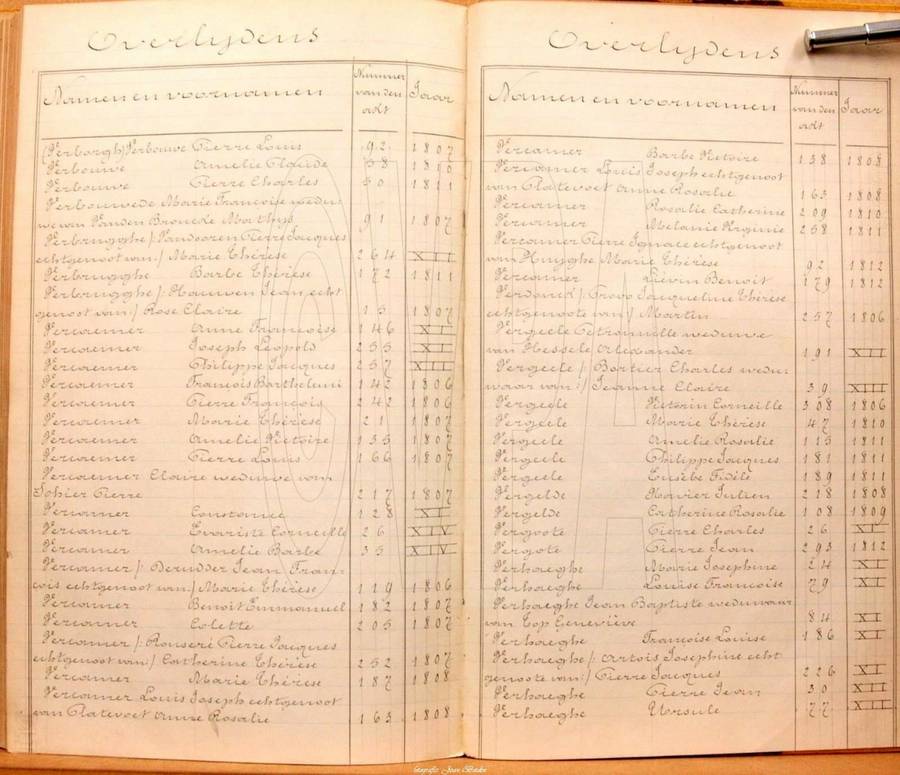 Overlijdens
Namen en voornamen Nummer van den akt Jaar
(Verborgh) Verbouwe Pierre Louis 92 1807
Verbouwe Amelie Claude 58 1810
Verbouwe Pierre Charles 50 1811
Verbouwede Marie Françoise wedu-
we van Vanden Broucke Mathys 91 1807
Verbrugghe /: Vandooren Pierre Jacques
echtgenoot van :/ Marie Thérèse 264 XIII
Verbrugghe Barbe Thérèse 172 1811
Verbrugghe /: Hauwen Jean echt
genoot van :/ Rose Claire 15 1807
Vercaemer Anne Françoise 146 XI
Vercaemer Joseph Leopold 255 XII
Vercaemer Philippe Jacques 257 XIII
Vercaemer François Barthelemi 142 1806
Vercaemer Pierre François 242 1806
Vercaemer Marie Thérèse 21 1807
Vercaemer Amelie Victoire 135 1807
Vercaemer Pierre Louis 166 1807
Vercaemer Claire weduwe van
Johier Pierre 217 1807
Vercamer Constance 128 XI
Vercamer Evariste Corneille 26 XIV
Vercamer Amelie Barbe 35 XIV
Vercamer /: Derudder Jean Fran-
cois echtgenoot van :/ Marie Thérèse 119 1806
Vercamer Benoit Emmanuel 182 1807
Vercamer Colette 205 1807
Vercamer /: Ronseré Pierre Jacques
echtgenoot van :/ Catherine Thérèse 252 1807
Vercamer Marie Thérèse 187 1808
Vercamer Louis Joseph echtgenoot
van Platevoet Anne Rosalie 163 1808
Overlijdens
Namen en voornamen Nummer van den akt Jaar
Vercamer Barbe Victoire 138 1808
Vercamer Louis Joseph echtgenoot
van Platevoet Anne Rosalie 163 1808
Vercamer Rosalie Catherine 209 1810
Vercamer Melanie Virginie 258 1811
Vercamer Pierre Ignace echtgenoot
van Huyghe Marie Thérèse 92 1812
Vercamer Lievin Benoit 179 1812
Verdonck /: Jacqueline Thérèse
echtgenoote van :/ Martin 257 1806
Vergeele Petronnelle weduwe
van Hessele Alexander 191 XII
Vergeele /: Bortier Charles wedu-
waar van :/ Jeanne Claire 39 XIII
Vergeele Victorin Corneille 308 1806
Vergeele Marie Thérèse 47 1810
Vergeele Amelie Rosalie 115 1811
Vergeele Philippe Jacques 181 1811
Vergeele Eusèbe Fidèle 189 1811
Vergelde Xavier Julien 218 1808
Vergelde Catherine Rosalie 108 1809
Vergoote Pierre Charles 26 XI
Vergote Pierre Jean 293 1812
Verhaeghe Marie Josephine 24 XI
Verhaeghe Louise Françoise 79 XI
Verhaeghe Jean Baptiste weduwaar
van Top Geneviève 84 XI
Verhaeghe Françoise Louise 186 XI
Verhaeghe /: Artois Josephine echt
genoote van :/ Pierre Jacques 226 XI
Verhaeghe Pierre Jean 30 XII
Verhaeghe Ursule 77 XII